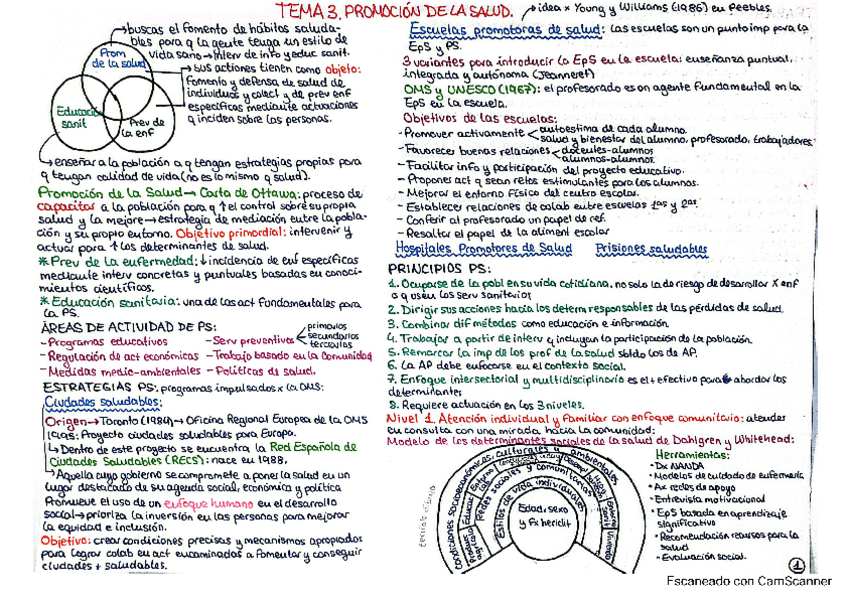 TEMA 3. PROMOCIÓN DE LA SALUD.
buscas el fomento de hábitos saluda-
bles para q la gente tenga un estilo de
vida sano → interv de info y educ sanit.
Prom
de la salud
sus actiones tienen como objeto:
fomento y defensa de salud de
individuos y colect y de prev enf
específicas mediante actuaciones
q inciden sobre las personas.
Educación
sanit
Prev de
la enf
enseñar a la población a q tengan estrategias propias para
q tengan calidad de vida (no es lo mismo q salud).
Promoción de la Salud → Carta de Ottawa: proceso de
capacitar a la población para q ↑ el control sobre su propia
salud y la mejore → estrategia de mediación entre la pobla-
ción y su propio entorno. Objetivo primordial: intervenir y
actuar para ↑ los determinantes de salud.
* Prev de la enfermedad: ↓ incidencia de enf específicas
mediante interv concretas y puntuales basadas en conoci-
mientos científicos.
* Educación sanitaria: una de las act fundamentales para
la PS.
ÁREAS DE ACTIVIDAD DE PS:
- Programas educativos
- Serv preventivos
primarios
secundarios
terciarios
- Regulación de act económicas
- Trabajo basado en la Comunidad
- Medidas medio-ambientales
- Políticas de salud.
ESTRATEGIAS PS: programas impulsados x la OMS:
Ciudades saludables:
Origen → Toronto (1984) → Oficina Regional Europea de la OMS
1995: Proyecto ciudades saludables para Europa.
↳ Dentro de este proyecto se encuentra la Red Española de
Ciudades Saludables (RECS): nace en 1988.
Aquella cuyo gobierno se compromete a poner la salud en un
lugar destacado de su agenda social, económica y política
Promueve el uso de un enfoque humano en el desarrollo
social → prioriza la inversión en las personas para mejorar
la equidad e inclusión.
Objetivo: crear condiciones precisas y mecanismos apropiados
para lograr colab en act encaminadas a fomentar y conseguir
ciudades + saludables.
idea x Young y Williams (1985) en Peebles.
Escuelas promotoras de salud: las escuelas son un punto imp para la
EpS y PS.
3 variantes para introducir la EpS en la escuela: enseñanza puntual,
integrada y autónoma (Jeanneret)
OMS y UNESCO (1967): el profesorado es on agente fundamental en la
EpS en la escuela.
Objetivos de las escuelas:
- Promover activamente
autoestima de cada alumno.
salud y bienestar del alumno, profesorado, trabajadores.
- Favorecer buenas relaciones
docentes-alumnos
alumnos-alumnos.
- Facilitar info y participación del proyecto educativo.
- Propones act q sean retos estimulantes para los alumnos.
- Mejorar el entorno físico del centro escolar.
- Establecer relaciones de colab entre escuelas 1as y 2as
- Conferir al profesorado un papel de ref.
- Resaltar el papel de la aliment escolar
Hospitales Promotores de Salud Prisiones saludables
PRINCIPIOS PS:
1. Ocuparse de la pobl en su vida cotidiana, no solo la de riesgo de desarrollar X enf
o q usen los serv sanitarios
2. Dirigir sus acciones hacia los determ responsables de las pérdidas de salud.
3. Combinar dif métodos como educación e información.
4. Trabajar a partir de interv q incluyan la participación de la población.
5. Remarcar la imp de los prof de la salud sbtdo los de AP.
6. La AP debe enfocarse en el contexto social.
7. Enfoque intersectorial y multidisciplinario es el + efectivo para abordar los
determinantes
8. Requiere actuación en los 3 niveles.
Nivel 1. Atención individual y familiar con enfoque comunitario: atender
en consulta con una mirada hacia la comunidad:
Modelo de los determinantes sociales de la salud de Dahlgren y Whitehead:
Condiciones socioeconómicas, culturales y ambientales
Redes sociales y comunitarias
Estilos de vida individuales
Edad, sexo
y Fx heridit
Vivienda
Herramientas:
• Dx NANDA
• Modelos de cuidado de enfermería
• Ax redes de apoyo
- Entrevista motivacional
• EpS basada en aprendizaje
significativo
• Recomendación recursos para la
salud
- Evaluación social.
1
Escaneado con CamScanner